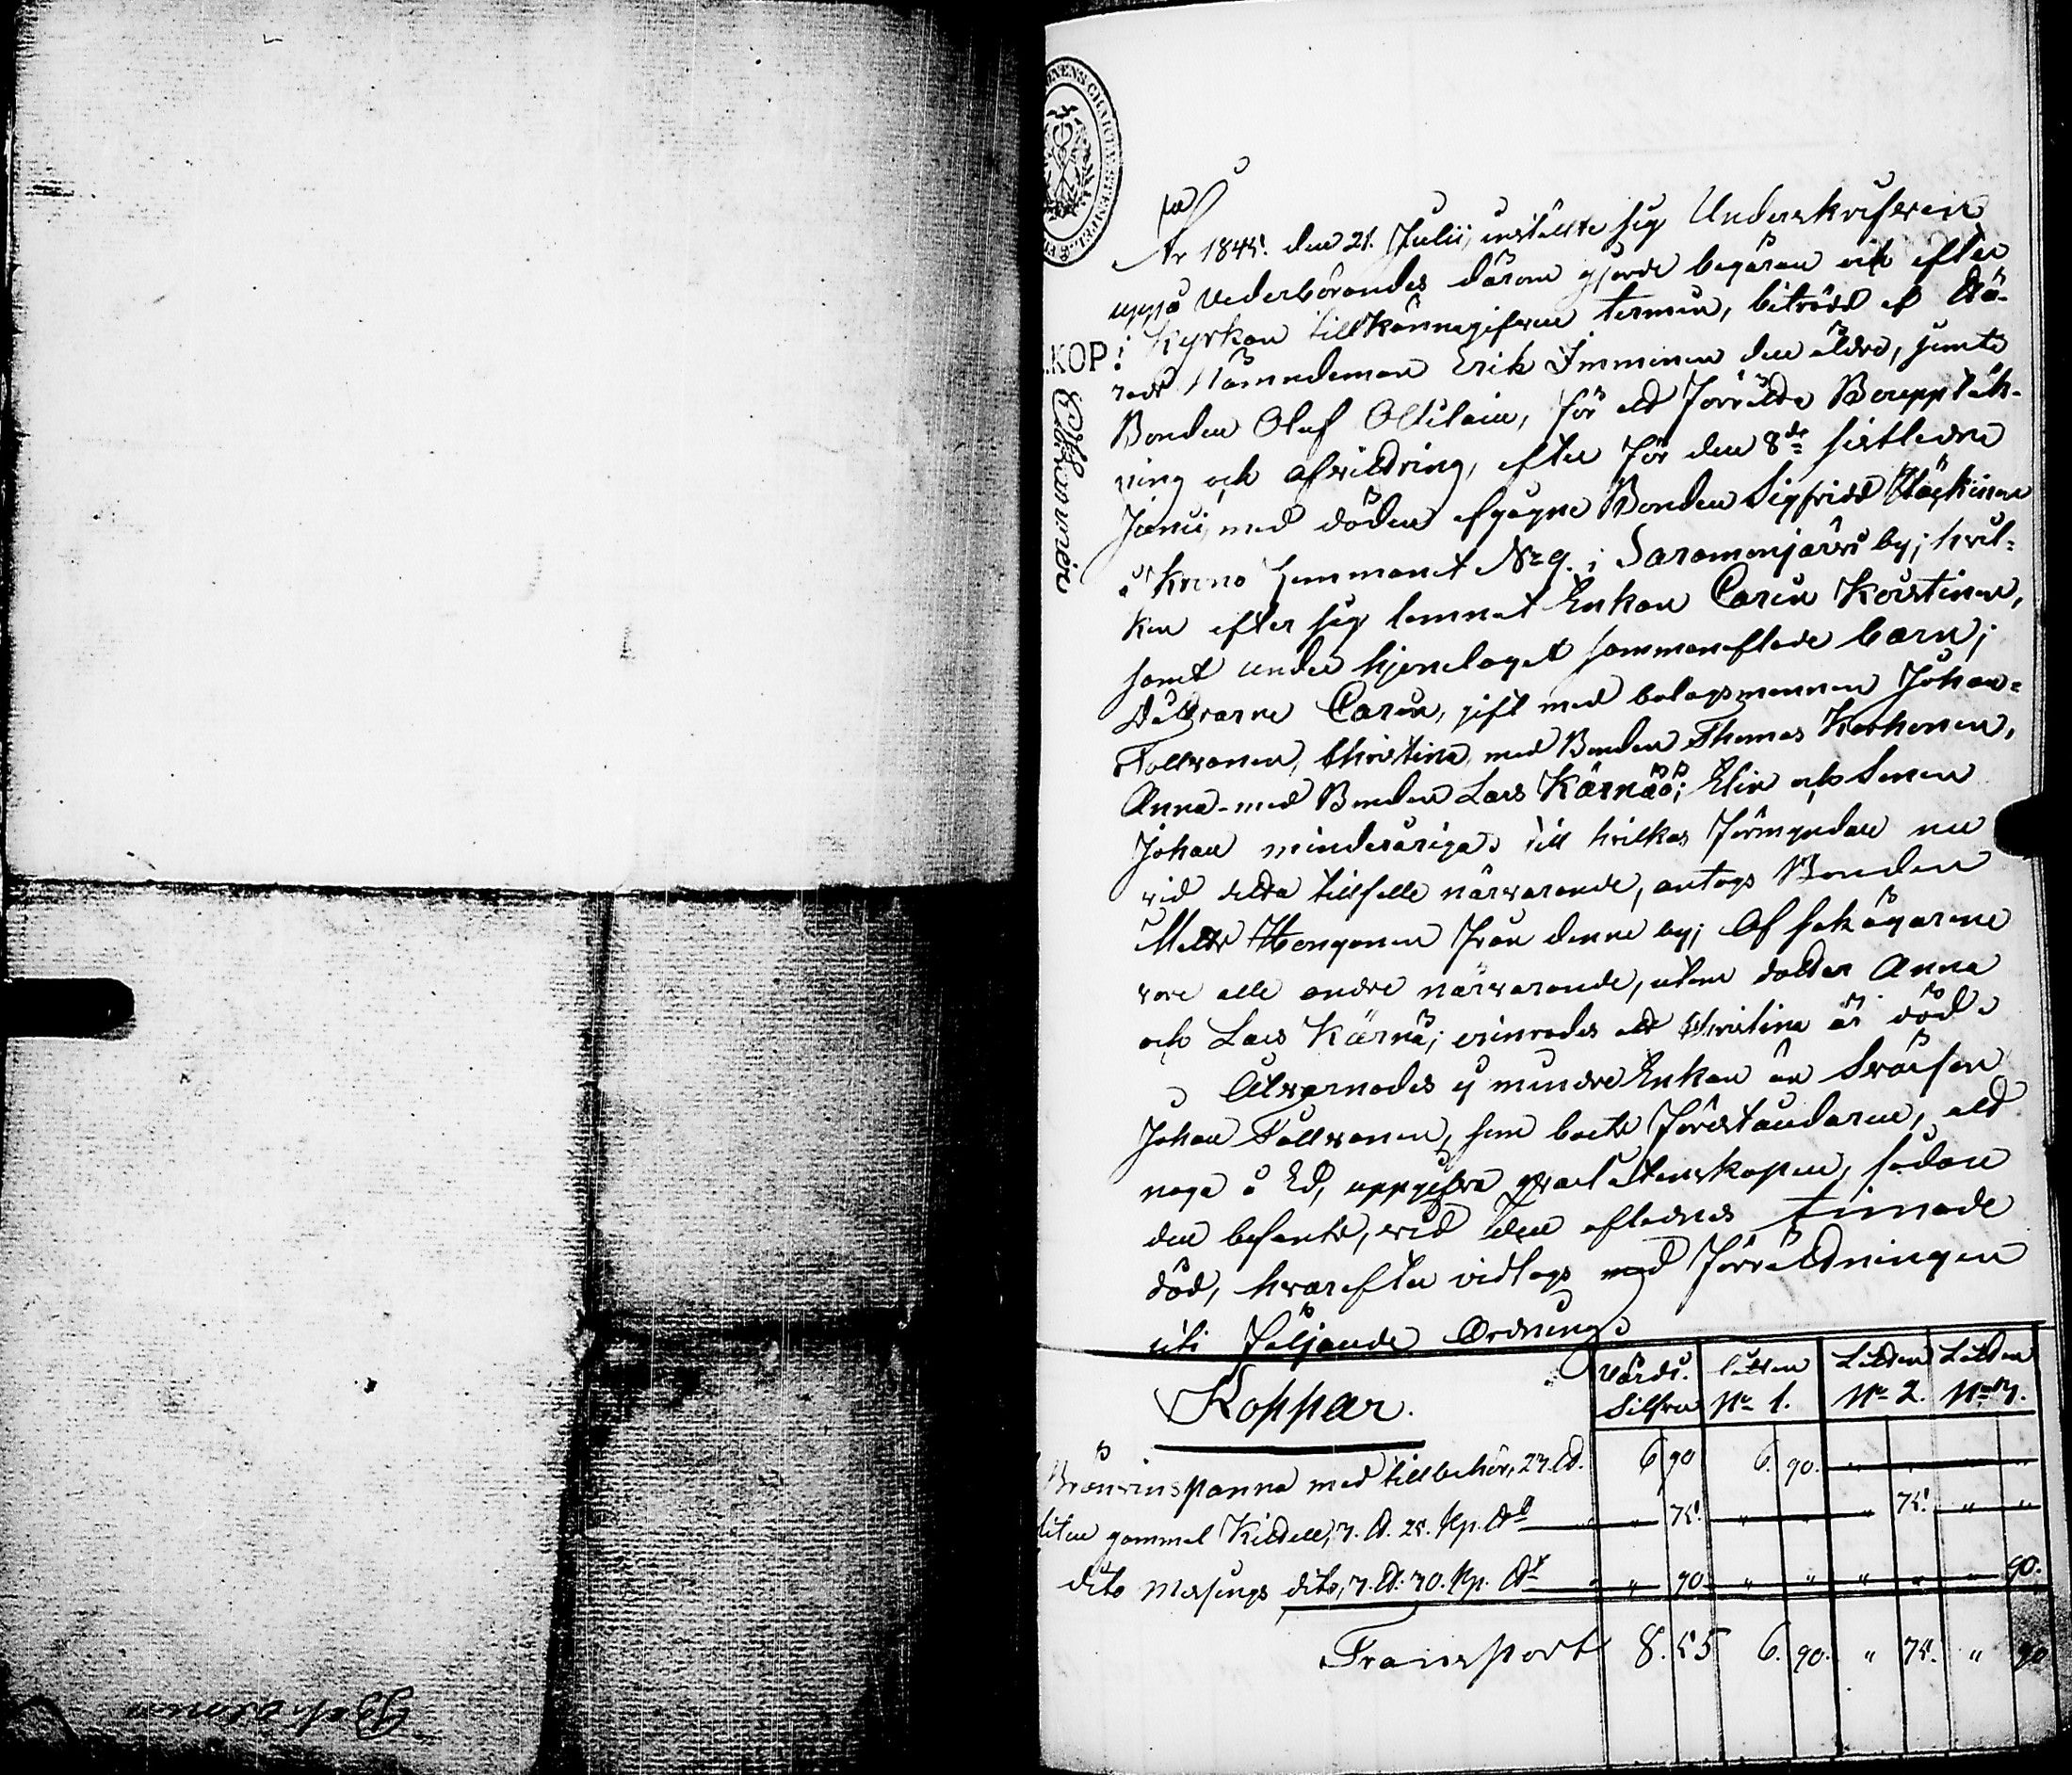 År 1845. den 21. Julii, instälte sig Underskrifven
uppå Vederbörandes därom gjorde begäran och efter
i Kyrkan tillkännagifven termin, biträdd af Hä-
rads Nämndeman Erik Imminen den äldre, jemte
Bonden Olof Oltilain, för att förrätta Boupptek-
ning och afvittring, efter för den 8de sistledne
Junii, med döden afgågne Bonden Sigfrid Häckinen
å Krono Hemmanet No 9. i Saramonjärvi by; hvil-
ken efter sig lemnat Enkan Carin Kövstinen,
samt under hjonelaget sammanaflade barn;
Döttrarne Carin, gift med bolagsmannen Johan
Tollvanen, Christina, med Bonden Thomas Korhonen,
Anna med Bonden Lars Kärnä; Elin och Sonen
Johan minderåriga. till hvilkas förmyndare nu
vid detta tillfälle närvarande, antogs Bonden
Matts Hongonen från denne by; Af sakägarene
voro alle andre närvarande, utom dotter Anna
och Lars Kärnä; erinrades att Christina är död.
Åtvarnades ej mindre Enkan än Svärson
Johan Tollvanen, som boets föreståndare, att
noga å Ed, uppgifva qvarlåtenskapen, sådan
den befants, vid den aflednes timade
död, hvarefter vidtogs med förrättningen
uti följande Ordning.
Koppar.
Värde. Lotten Lotten Lotten
Silfver No 1. No 2. No 3.
Brännvinspanna med tillbehör, 23. ℔. 6 90 6. 90. " " " "
liten gammal Kittell, 3. ℔. 25. Kp. ℔t " 75. " " " 75. " "
dito Messings dito, 3. ℔. 30. Kp. ℔t " 90 " " " " " 90.
Transport 8. 55 6. 90. " 75. " 90
.KOP.